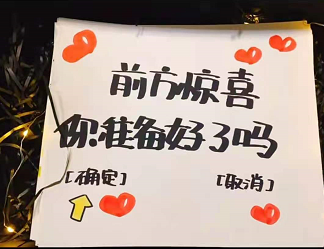 前方惊喜
你准备好了吗
[确定]
[取消]